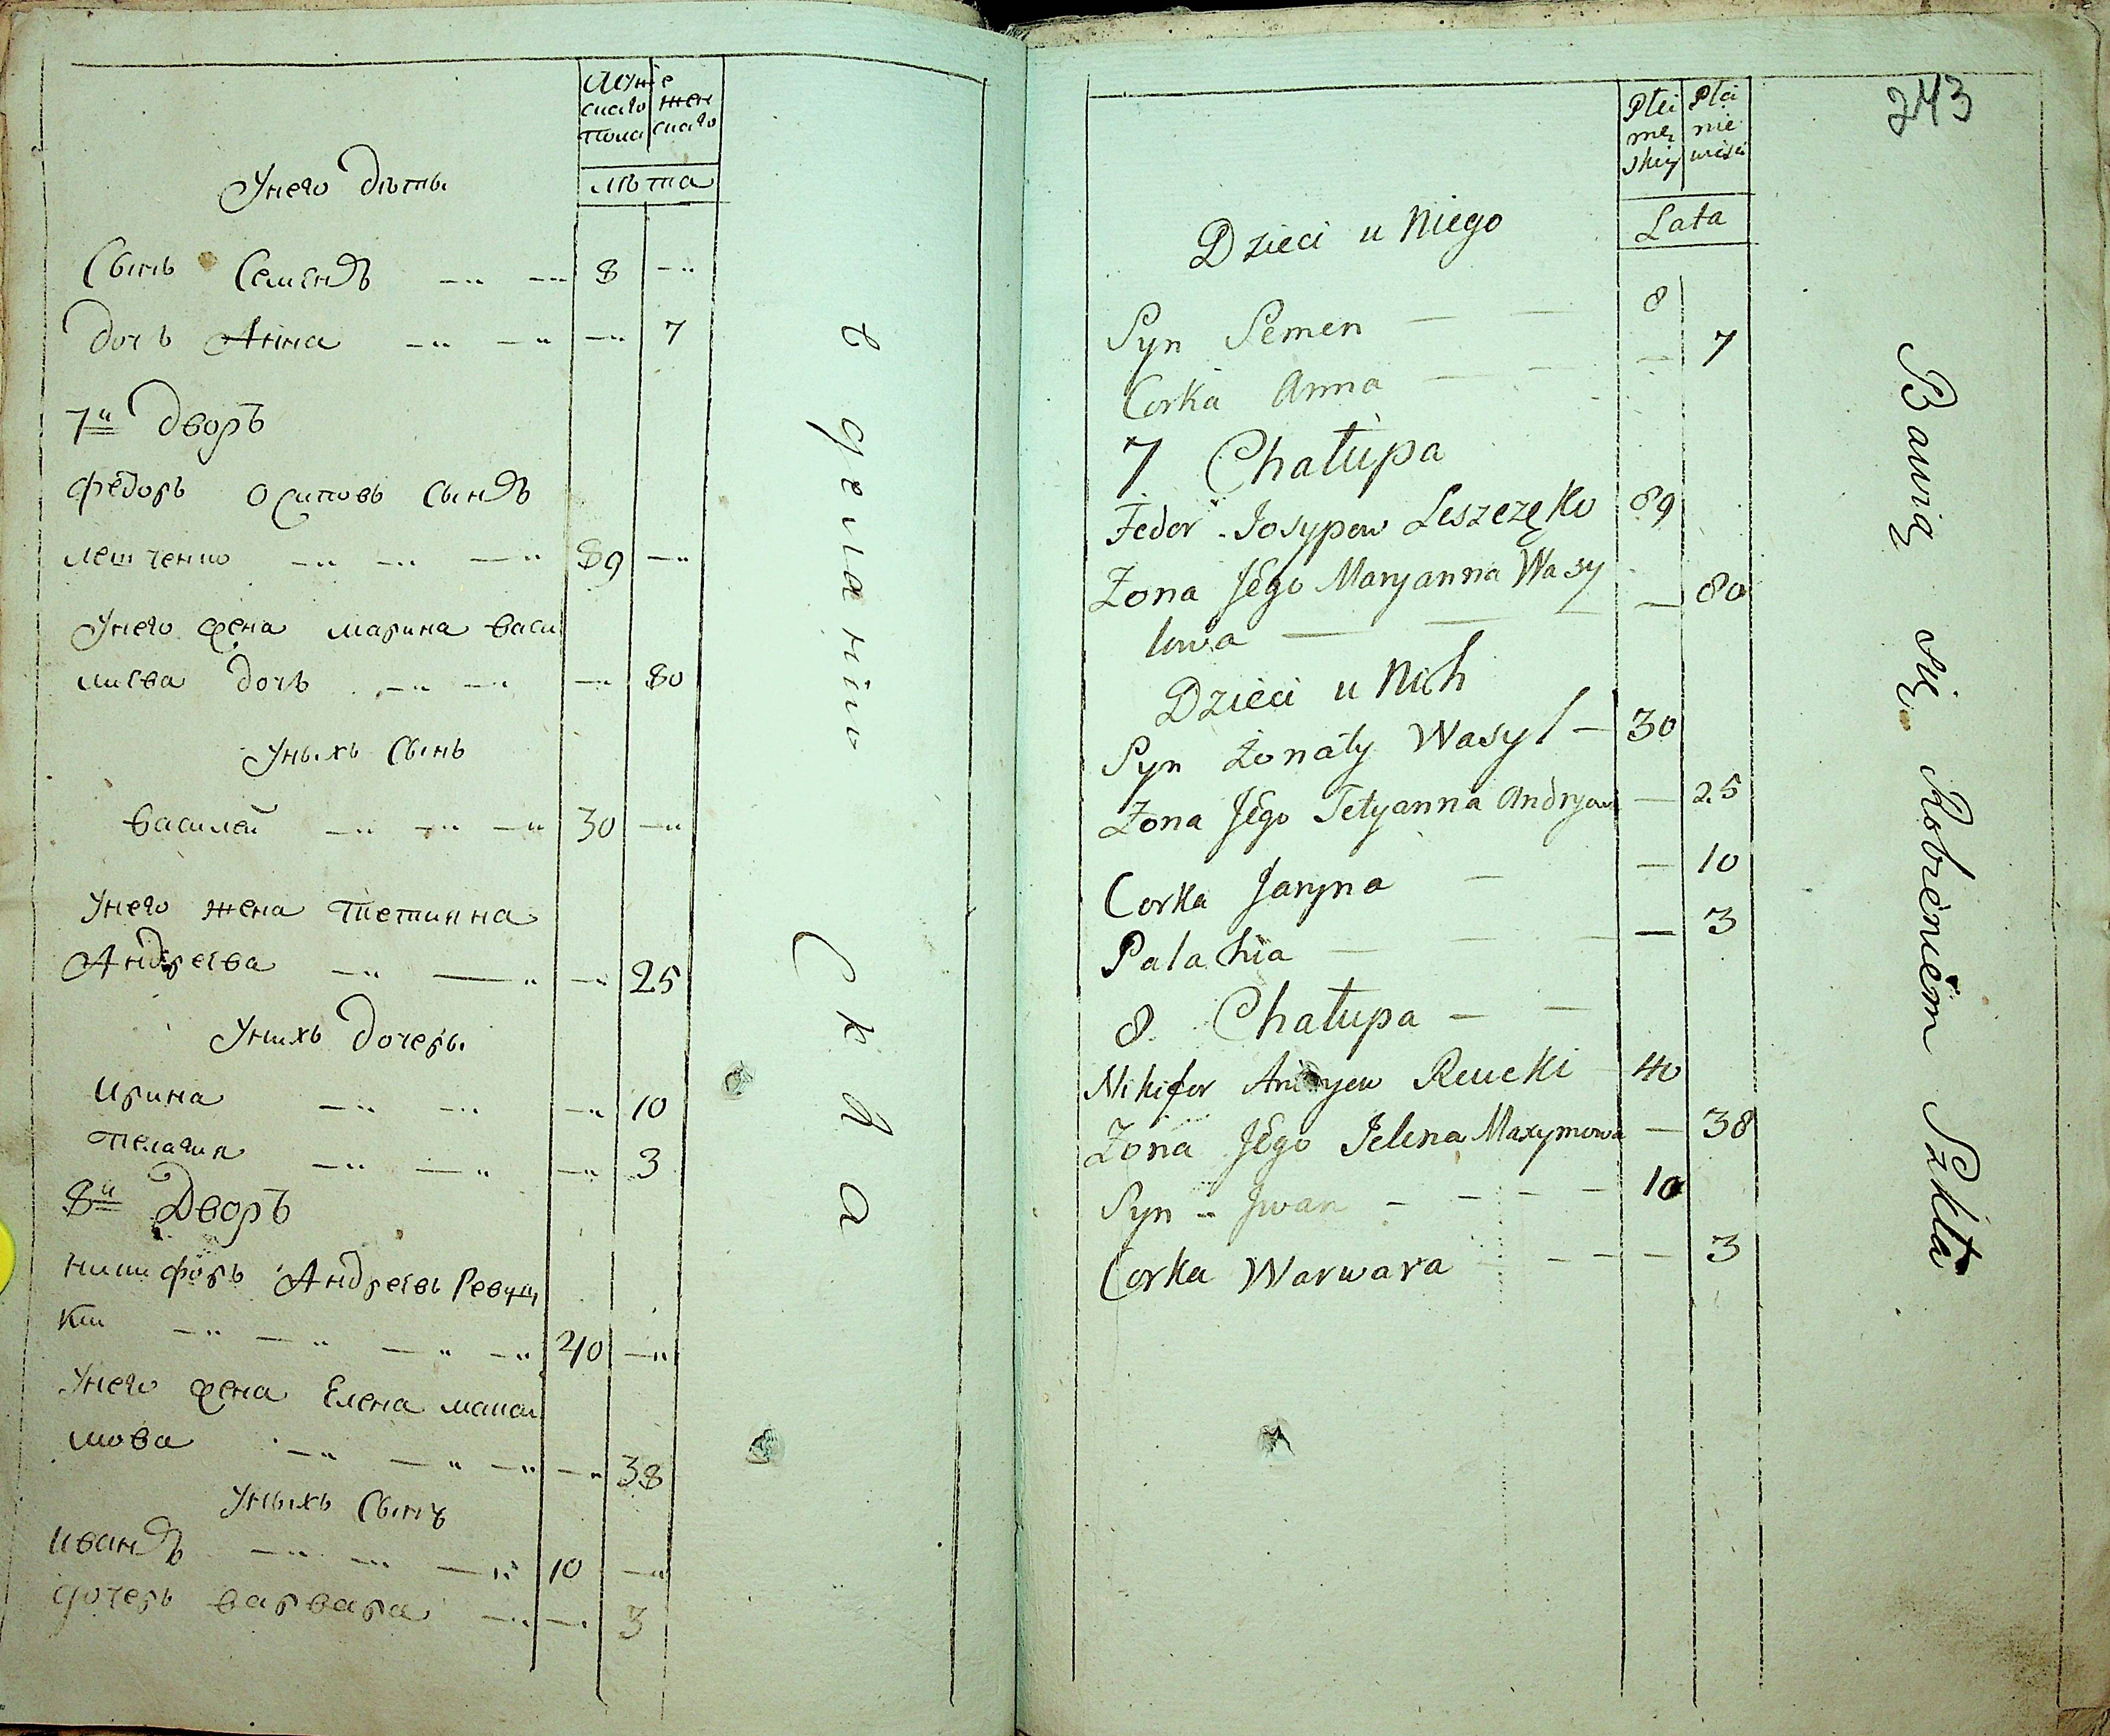 Муже
скаго жен
пола скаго
лѣта
Унего дѣти
Сынъ Семенъ —„ —„ 8 —„
дочь Анна —„ —„ —„ 7
7й дворъ
Федоръ Осиповъ Сынъ
лещенко —„ —„ —„ 89 —„
Унего жена марина васи
лиева дочь —„ —„ —„ 80
Уныхъ Сынъ
василей —„ —„ —„ 30 —„
Унего жена тетияна
Андреева —„ —„ —„ 25
Унихъ дочери
Ирина —„ —„ —„ 10
пелагия —„ —„ —„ 3
8й Дворъ
никифоръ Андреевъ Ревуц
кий —„ —„ —„ —„ 40 —„
Унего жена Елена макси
мова —„ —„ —„ —„ 38
Уныхъ Сынъ
иванъ —„ —„ —„ 10 —„
дочерь варвара —„ —„ 3
Скла
243
Płci Płci
mę nie
skiey
Lata
Dzieci u Niego
Syn Semen — — 8
Corka Anna — — — 7
7 Chałupa
Fedor Josypow Leszczęko 89
Żona Jego Maryanna Wasy
lowa — — — — 80
Dzieci u Nich
Syn żonaty Wasyl — 30
Żona Jego Tetyanna Andryow — 25
Corka Jaryna — — 10
Palahia — — — — 3
8. Chałupa — —
Nikifor Andryew Rewcki 40
Żona Jego Jelena Maxymowa — 38
Syn Jwan — — — — 10
Corka Warwara — — — 3
Bawią się Robieniem Szkła